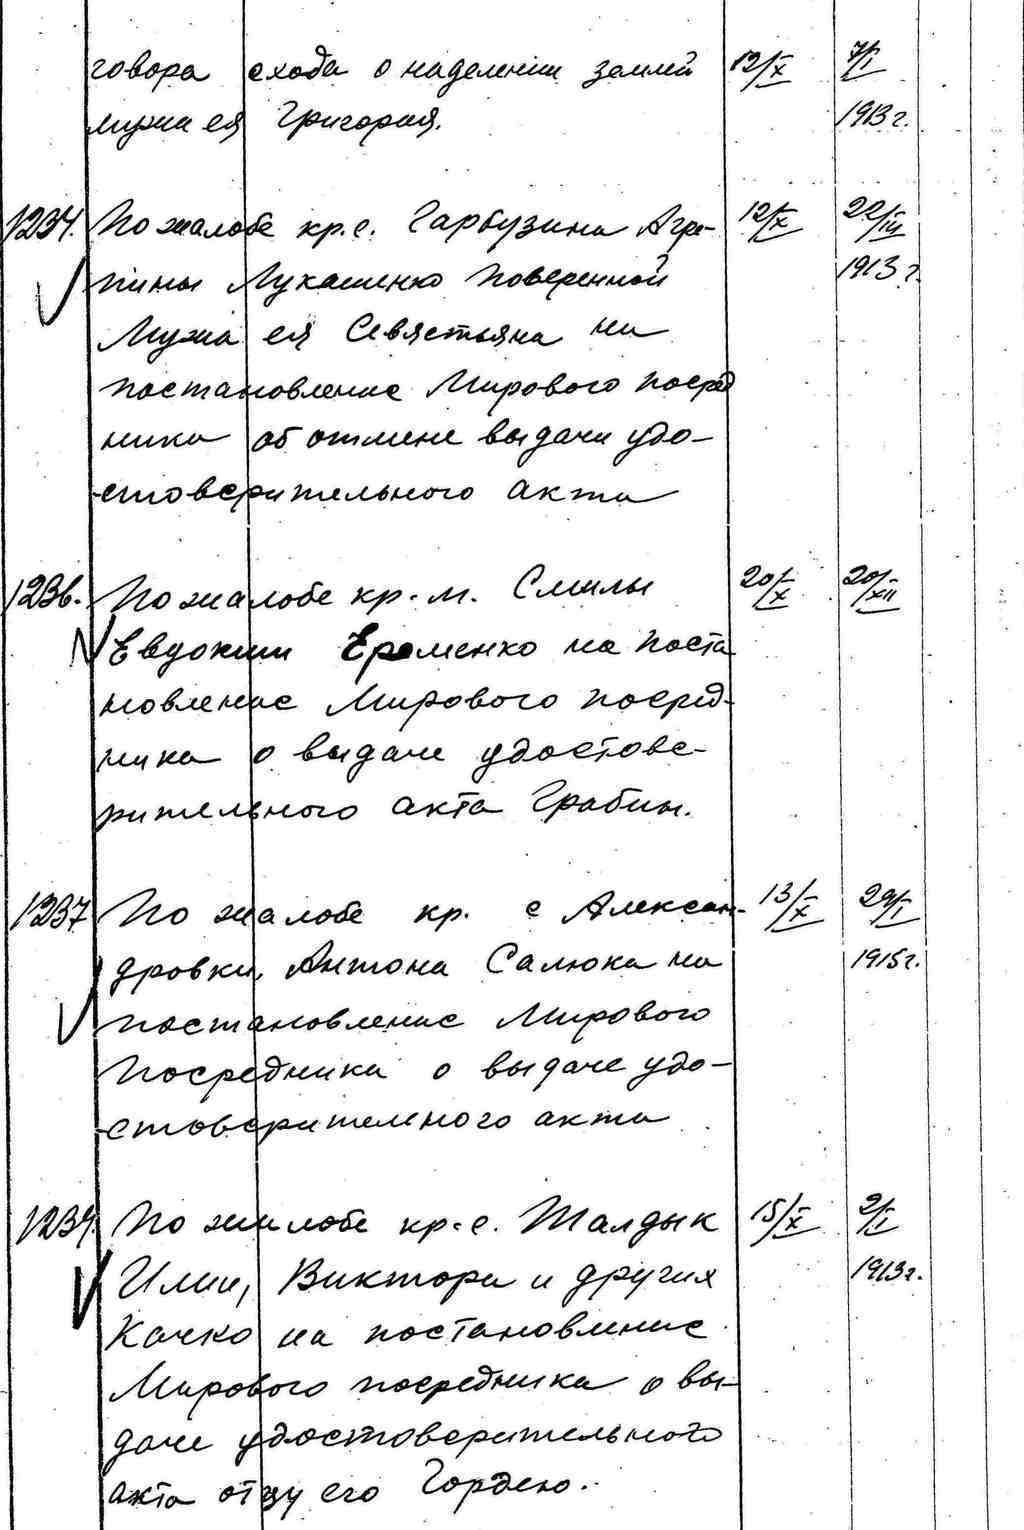 говора схода о наделении землей 12/X 7/I
мужа ея Григория. 1913 г.
1234. По жалобе кр. с. Гарбузина Агре- 12/X 22/III
пины Лукашенко поверенной 1913 г.
Мужа ея Севястьяна на
постановление Мирового посред
ника об отмене выдачи удо-
стоверительного акта
1236. По жалобе кр. м. Смилы 20/X 20/XII
Евдокии Еременко на поста
новление Мирового посред-
ника о выдаче удостове-
рительного акта Грабин.
1237 По жалобе кр. с Алексан- 13/X 29/I
дровки, Антона Салюка на 1915 г.
постановление Мирового
Посредника о выдаче удо-
стоверительного акта
По жалобе кр. с. Талдык 15/X 2/I
Илии, Виктора и других 1913 г.
Качко на постановление
Мирового посредника о вы-
даче удостоверительного
акта отцу его Гордею.